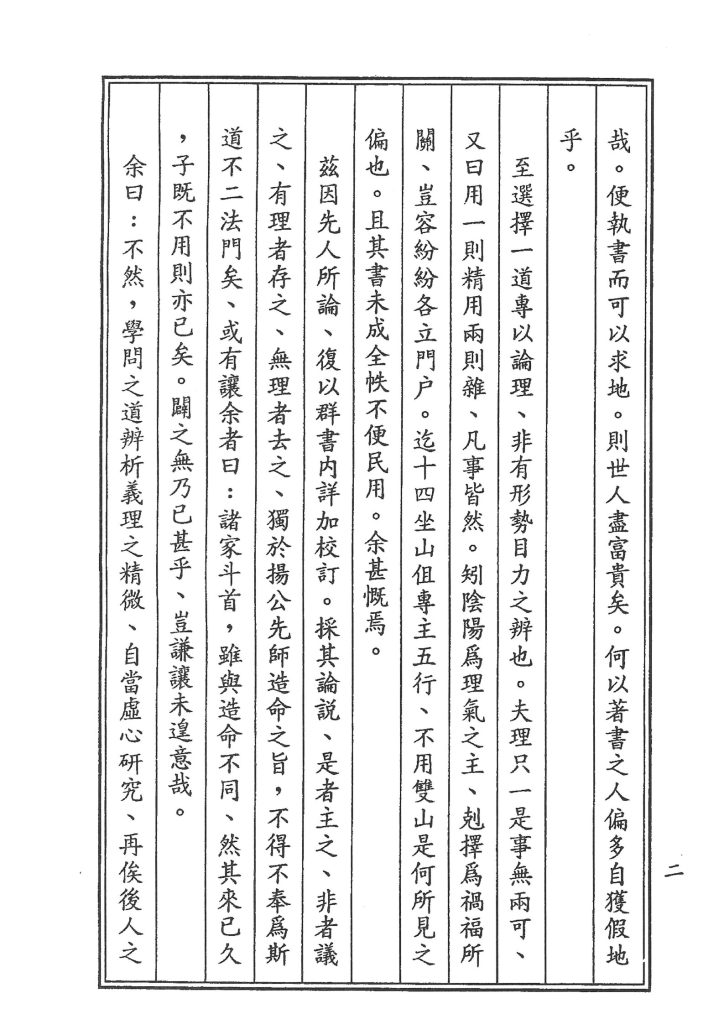 哉。便執書而可以求地。則世人盡富貴矣。何以著書之人偏多自獲假地
乎。
至選擇一道專以論理、非有形勢目力之辨也。夫理只一是事無兩可、
又曰用一則精用兩則雜、凡事皆然。矧陰陽爲理氣之主、剋擇爲禍福所
關、豈容紛紛各立門户。迄十四坐山伹專主五行、不用雙山是何所見之
偏也。且其書未成全帙不便民用。余甚慨焉。
茲因先人所論、復以群書内詳加校訂。採其論説、是者主之、非者議
之、有理者存之、無理者去之、獨於揚公先師造命之旨，不得不奉爲斯
道不二法門矣、或有讓余者曰：諸家斗首，雖與造命不同、然其來已久
，子既不用則亦已矣。闢之無乃已甚乎、豈謙讓未遑意哉。
余曰：不然，學問之道辨析義理之精微、自當虛心研究、再俟後人之
二